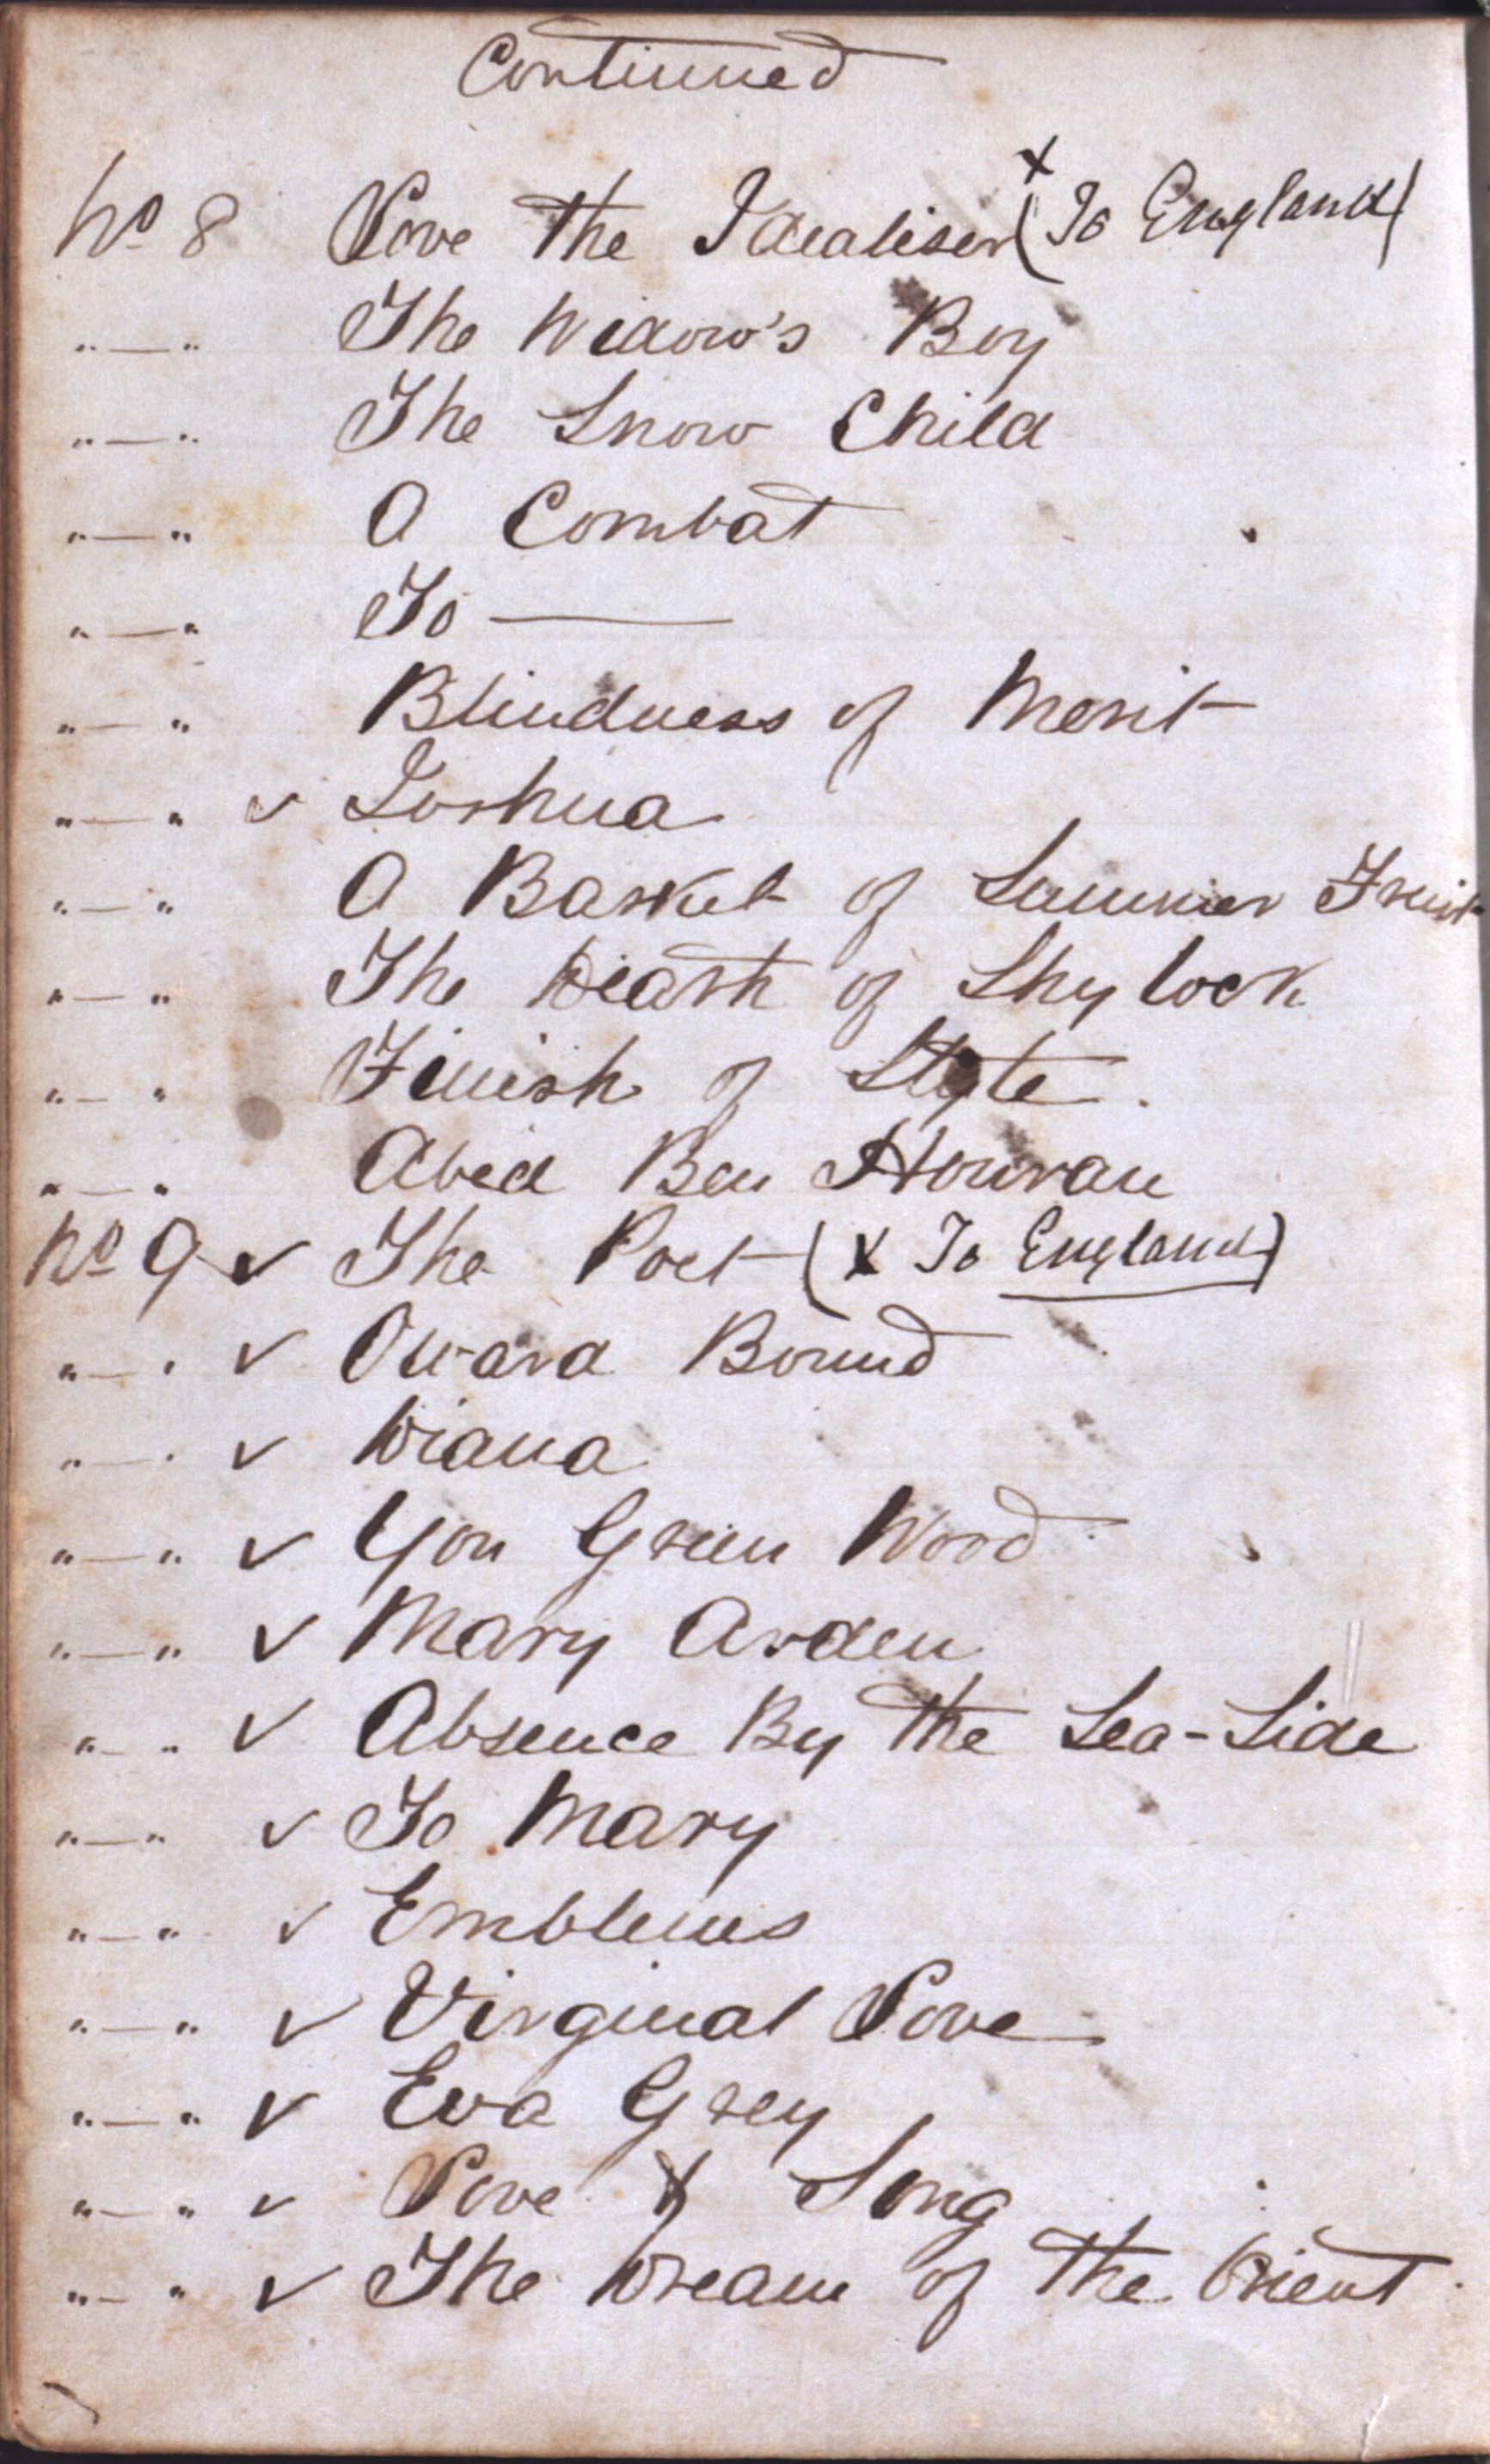 Continued
No 8 Love the Idealiser (x To England)
"—" The Widow's Boy
"—" The Snow Child
"—" A Combat
"—" To ———
"—" Blindness of Merit
"—" ✓ Joshua
"—" A Basket of Summer Fruit
"—" The Death of Shylock
"—" Finish of Style.
"—" Abed Ben Houran
No 9 ✓ The Poet (x To England)
"—" ✓ Oward Bound
"—" ✓ Diana
"—" ✓ Yon Green Wood
"—" ✓ Mary Arden
"—" ✓ Absence By the Sea-Side
"—" ✓ To Mary
"—" ✓ Emblems
"—" ✓ Virginal Love
"—" ✓ Eva Grey
"—" ✓ Love & Song
"—" ✓ The Dream of the Orient